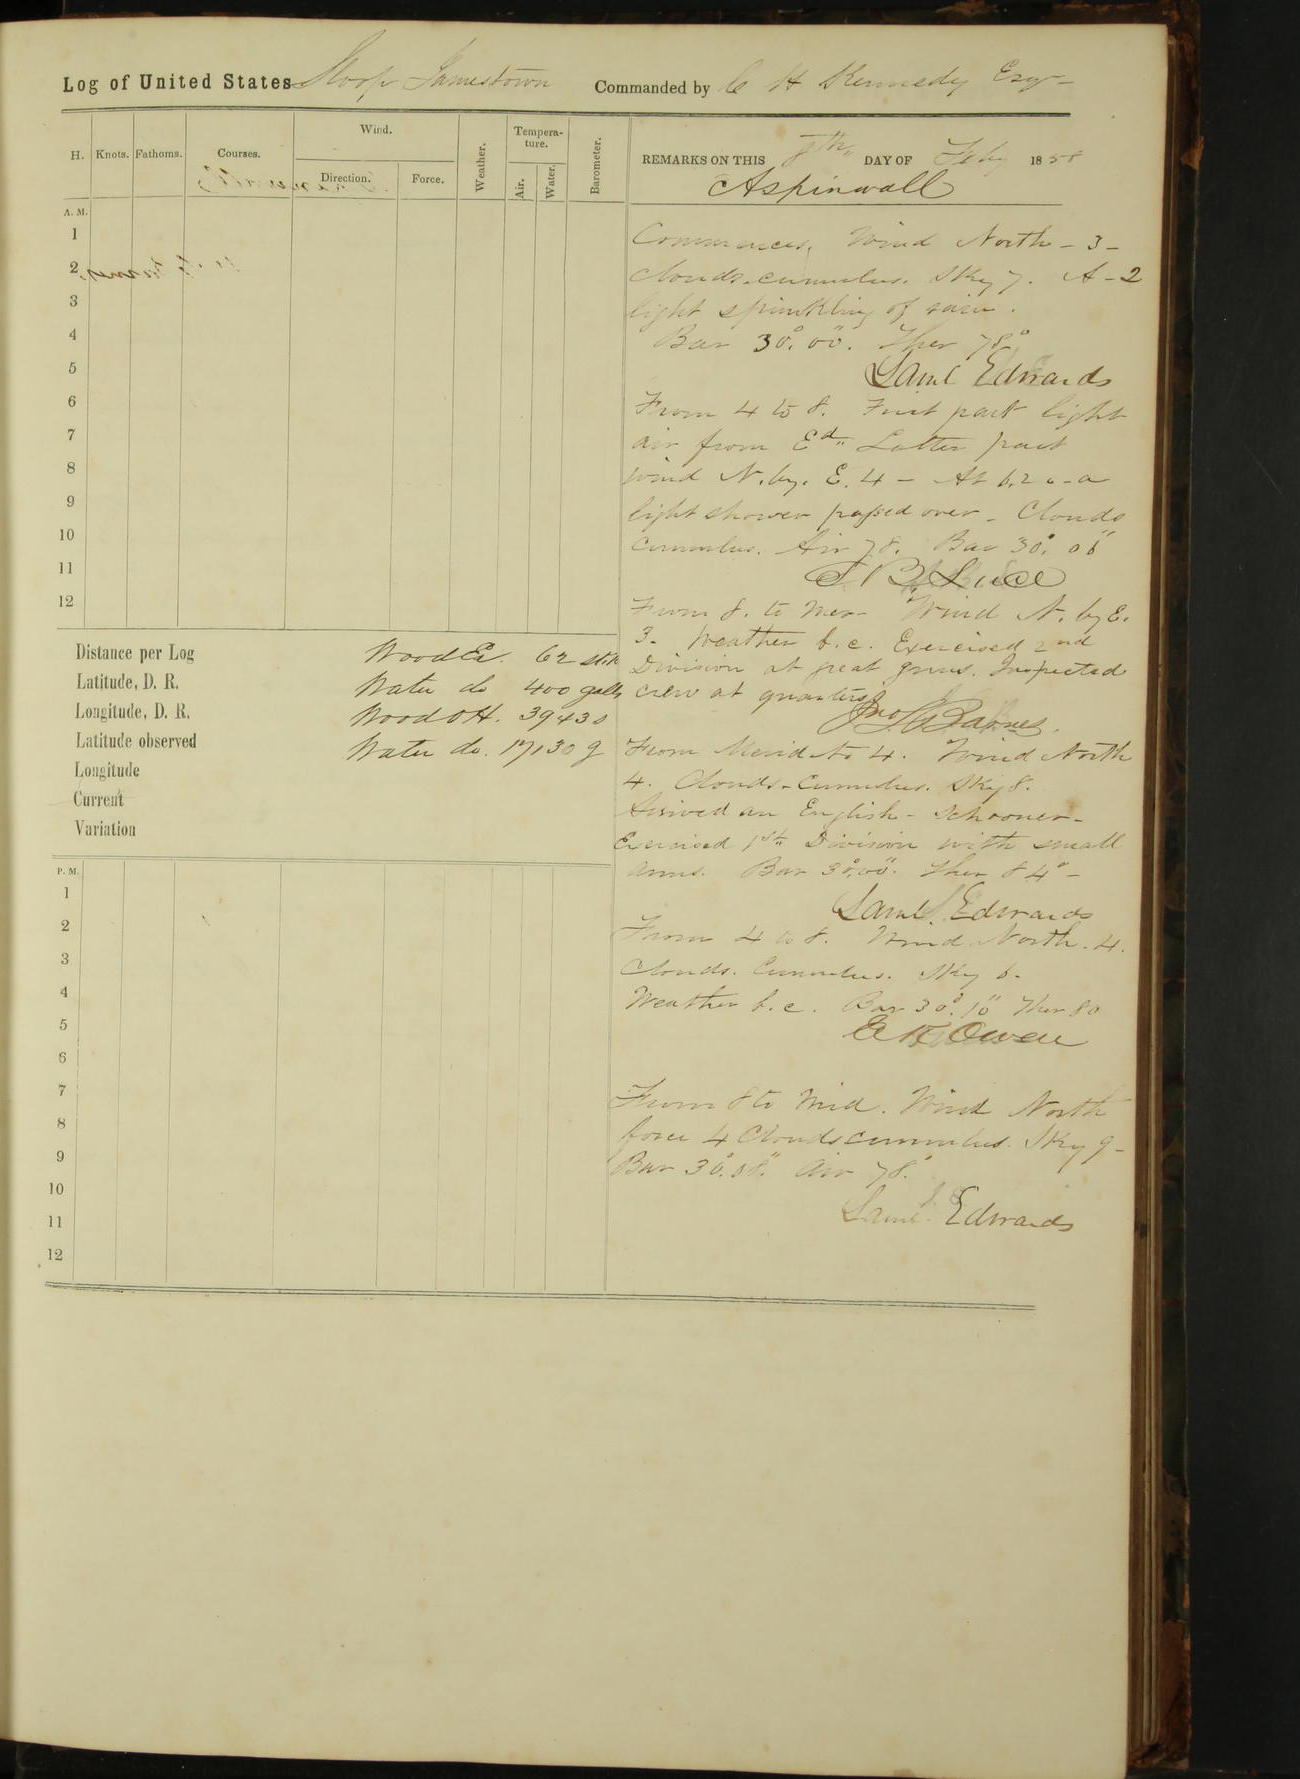 Log of United States Sloop Jamestown Commanded by C H Kennedy Esq-
H. Knots. Fathoms. Courses. Wind. Direction. Force. Weather. Tempera-ture. Air. Water. Barometer.
REMARKS ON THIS 8th,, DAY OF Feby 1858
Aspinwall
A. M.
1
2
3
4
5
6
7
8
9
10
11
12
Commences, Wind North - 3 -
Clouds-cumulus. Sky 7. A-2
light sprinkling of rain.
Bar 30°.00". Ther 78°
Saml Edwards
From 4 to 8. First part light
air from Ed,, Latter part
wind N. by. E. 4 - At 6.20 - a
light shower passed over - Clouds
cumulus. Air 78. Bar 30°.06"
S B Luce
From 8. to Mer- Wind N. by E.
3- Weather b.c. Exercised 2nd
Division at great guns. Inspected
crew at quarters
Jno S Barnes.
Distance per Log
Latitude, D. R.
Longitude, D. R.
Latitude observed
Longitude
Current
Variation
Wood Ex. 62 stk
Water do 400 galls
Wood OH. 39430
Water do. 17,130 g
From Merid to 4. Wind North
4. Clouds-Cumulus. Sky 8.
Arrived an English - Schooner-
Exercised 1st,, Division with small
arms. Bar 30°.00". Ther 84° -
Saml. Edwards
From 4 to 8. Wind North. 4.
Clouds. Cumulus. Sky 6-
Weather b.c. Bar 30°.10" Ther 80
E K Owen
From 8 to Mid. Wind North
force 4 Clouds cumulus. Sky 9-
Bar 30°.08". Air 78°.
Saml. Edwards
P. M.
1
2
3
4
5
6
7
8
9
10
11
12